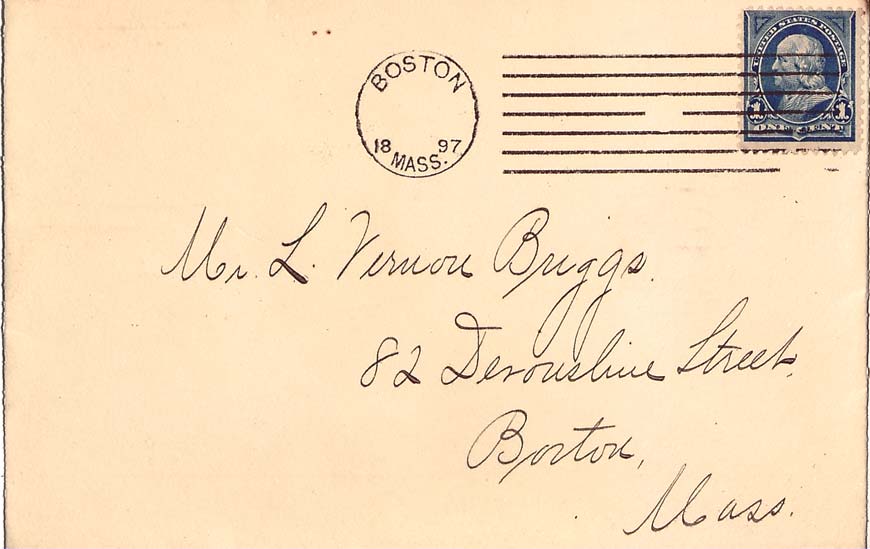 BOSTON
18 97
MASS.
UNITED STATES POSTAGE
1 1
ONE CENT
Mr. L. Vernon Briggs.
82 Devonshire Street,
Boston,
Mass.